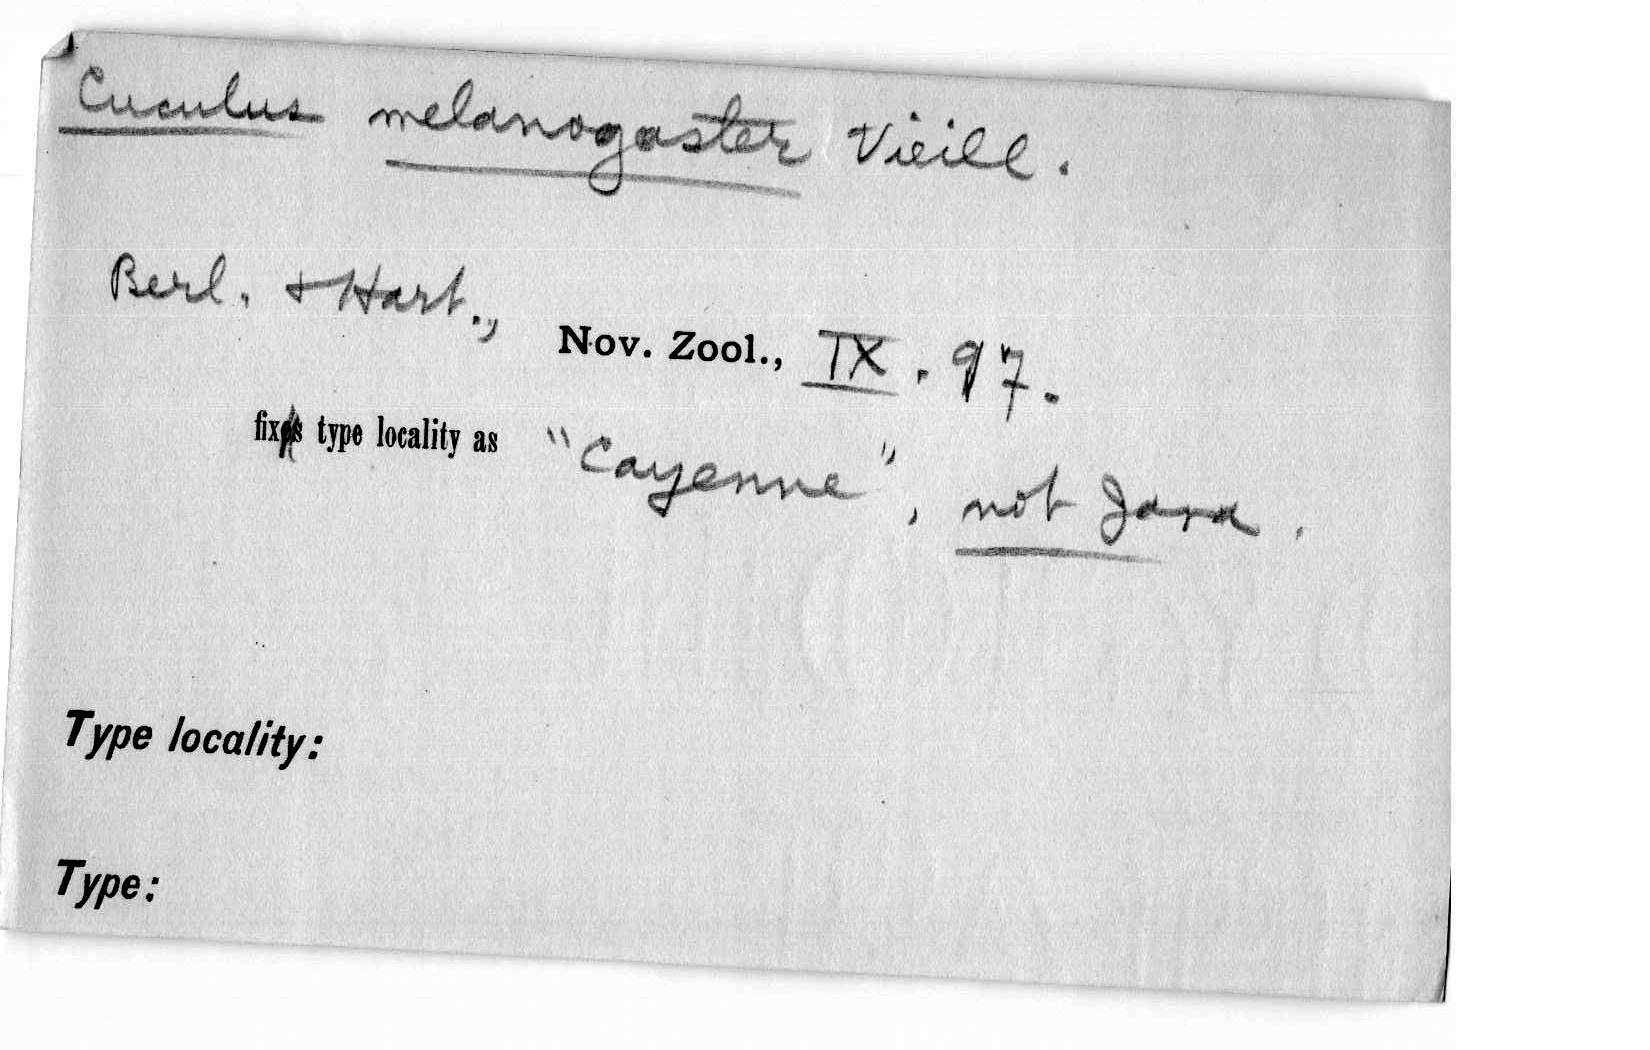 Cuculus melanogaster Vieill.
Berl. + Hart., Nov. Zool., IX. 97.
fixes type locality as "Cayenne", not Java.
Type locality:
Type: